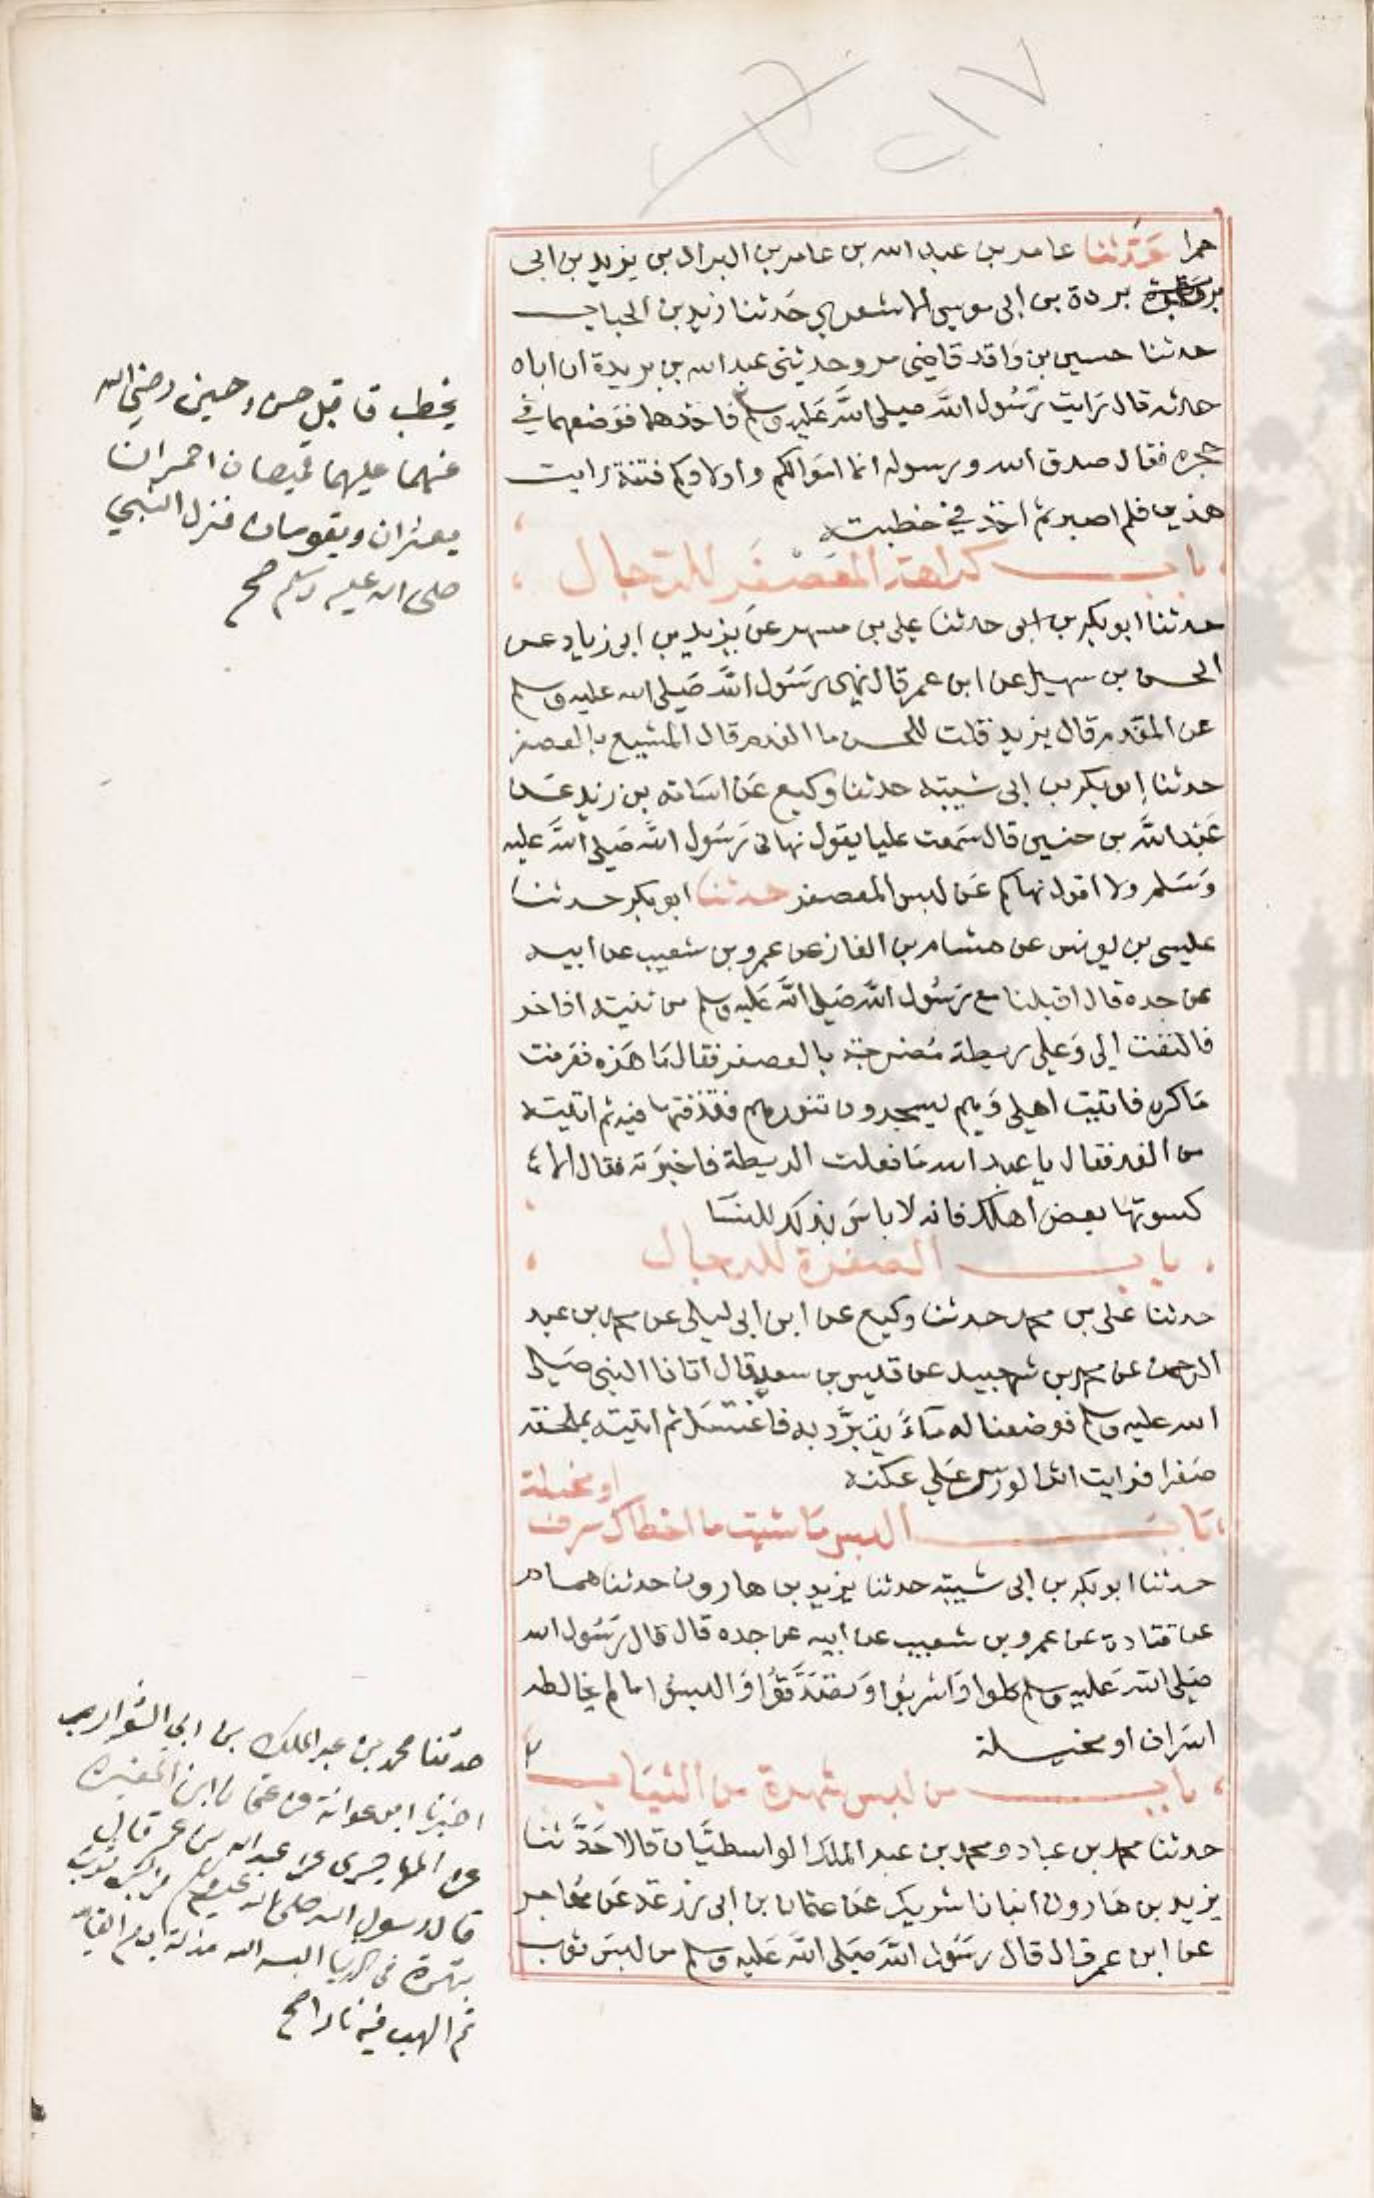 حمرا حدثنا عامر بن عبد الله بن عامر بن البراد بن يوید بن ابى
بردة بن أبى موسى الاشعري حدثنا زيد بن الحباب
حدثنا حسين بن واقد قاضى مرو حدثنى عبد الله بن بريدة ان اباه
حدثه قال رايت رسول الله صلى الله عليه وسلم فاخذهما فوضعهما في
حجره فقال صدق الله ورسوله انما اموالكم وأولادكم فتنة رايت
هذين فلم اصبر ثم اخذ في خطبته
باب كراهة المعصفر للرجال
حدثنا ابو بكر بن ابى حدثنا على بن مسهر عن يزيد بن ابى زياد عن
الحسن بن سهيل عن ابن عمر قال نهى رسول الله صلى الله عليه وسلم
عن المفدم قال يزيد قلت للحسن ما المفدم قال المشبع بالعصفر
حدثنا ابو بكر بن ابى شيبة حدثنا وكيع عن اسامة بن زيد عن
عبد الله بن حنين قال سمعت عليا يقول نهانى رسول الله صلى الله عليه
وسلم ولا اقول نهاكم عن لبس المعصفر حدثنا ابو بكر حدثنا
عليسى بن يونس عن هشام بن الغاز عن عمرو بن شعيب عن ابيه
عن جده قال اقبلنا مع رسول الله صلى الله عليه وسلم من ثنية اذاخر
فالتفت الي وعلى ريطة مضرجة بالعصفر فقال ما هذه فعرفت
ما كره فاتيت اهلى وهم يسجرون تنورهم فقذفتها فيه ثم اتيته
من الغد فقال يا عبد الله ما فعلت الريطة فاخبرته فقال الا
كسوتها بعض اهلك فانه لا باس بذلك للنسا
باب الصفرة للرجال
حدثنا على بن محمد حدثنا وكيع عن ابن ابى ليلى عن محمد بن عبد
الرحمن عن محمد بن شرحبيل عن قيس بن سعد قال اتانا النبى صلى
الله عليه وسلم فوضعنا له ماءً يتبرَّد به فاغتسل ثم اتيته بملحفة
صفرا فرايت اثر الورس على عكنه
او مخيلة
باب البس ما شيت ما اخطاك سرف
حدثنا ابو بكر بن ابى شيبة حدثنا يزيد بن هارون حدثنا همام
عن قتادة عن عمرو بن شعيب عن ابيه عن جده قال قال رسول الله
صلى الله عليه وسلم كلوا واشربوا وتصدقوا والبسوا ما لم يخالطه
اسراف او مخيلة
باب من لبس شهرة من الثياب
حدثنا محمد بن عباد ومحمد بن عبد الملك الواسطيَّان قالا حَدَّثنا
يزيد بن هارون انبانا شريك عن عثمان بن أبى زرعة عن مهاجر
عن ابن عمر قال قال رسول الله صلى الله عليه وسلم من لبس ثوب
يخطب فاقبل حسن وحسين رضي الله
عنهما عليهما قميصان احمران
يعثران ويقومان فنزل النبي
صلى الله عليه وسلم صح
حدثنا محمد بن عبد الملك بن ابي الشوارب
اخبرنا ابو عوانة عن عثمان بن المغيرة
عن المهاجرى عن عبد الله بن عمر قال
قال رسول الله صلى الله عليه وسلم من لبس ثوب
شهرة فى الدنيا البسه الله مذلة يوم القيامة
ثم الهب فيه نارا صح